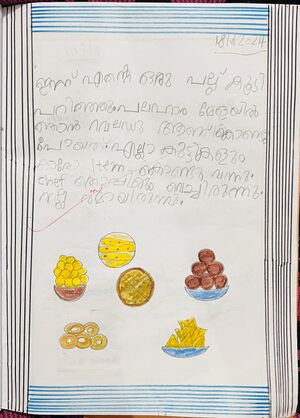 18/1/2024
ഇന്ന് എന്റെ ഒരു പല്ല് കൂടി
പറിഞ്ഞു. പലഹാര മേളയിൽ
ഞാൻ റവലഡു ആണ് കൊണ്ടു
പോയത്. എല്ലാ കുട്ടികളും
ഓരോ Item കൊണ്ടു വന്നു.
chef തൊപ്പിയും വെച്ചിരുന്നു.
നല്ല രസമായിരുന്നു.